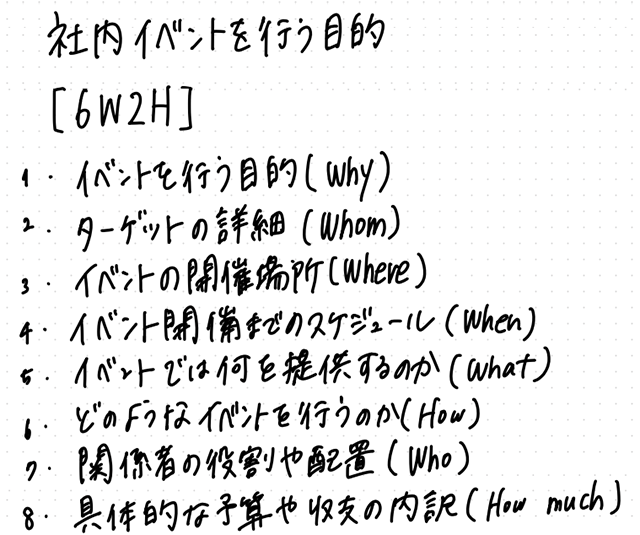 社内イベントを行う目的
[6W2H]
1. イベントを行う目的(Why)
2. ターゲットの詳細(Whom)
3. イベントの開催場所(Where)
4. イベント開備までのスケジュール(When)
5. イベントでは何を提供するのか(What)
6. どのようなイベントを行うのか(How)
7. 関係者の役割や配置(Who)
8. 具体的な予算や収支の内訳(How much)